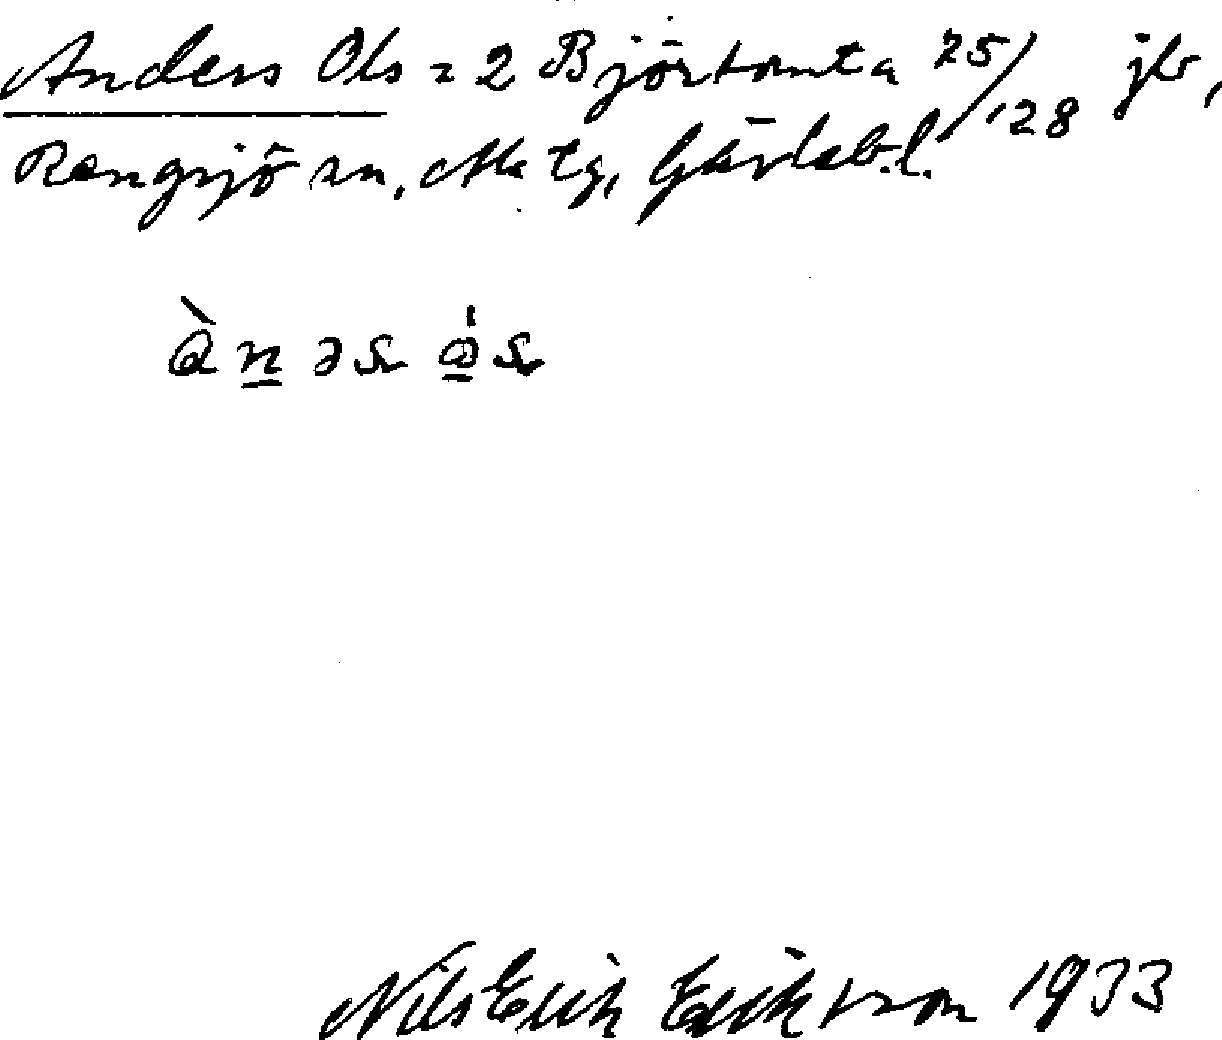 Anders Ols = 2 Björtomta 25/128 jb,
Rengsjö sn, Mt tg, Gävleb.l.
Nils Erik Eriksson 1933